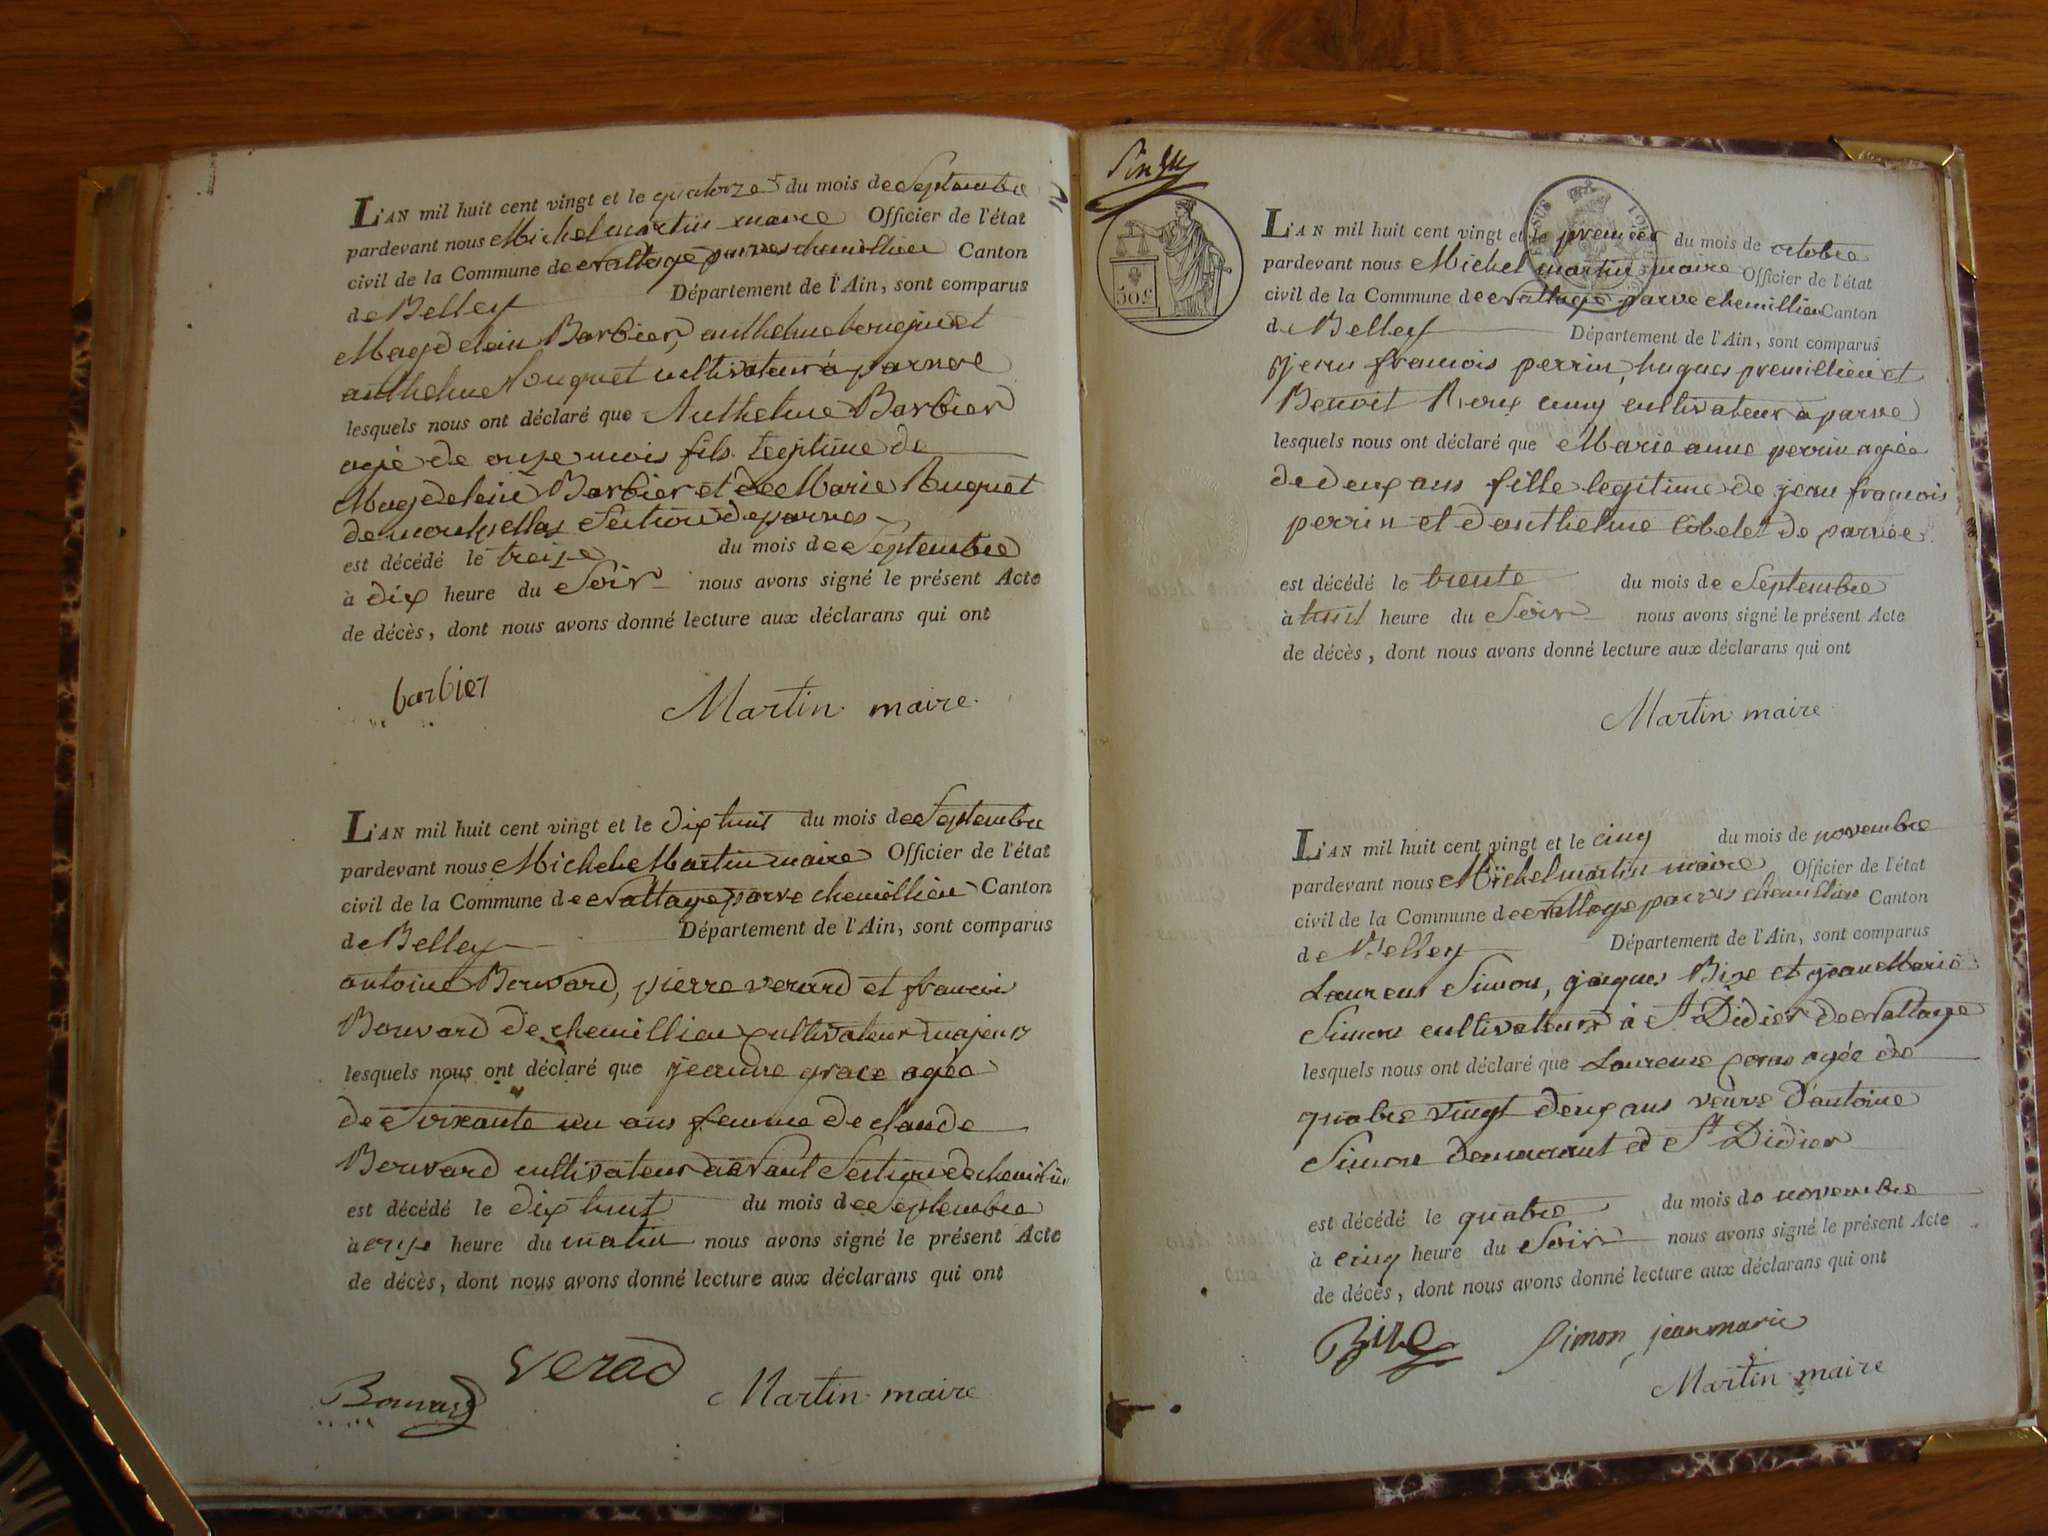 L'AN mil huit cent vingt et le quatorze du mois de Septembre
pardevant nous Michel martin maire Officier de l'état
civil de la Commune de Nattage parves chemillieu Canton
de Belley Département de l'Ain, sont comparus
Magdelein Barbier, anthelme
anthelme cultivateur à parves
lesquels nous ont déclaré que Anthelme Barbier
agé de onze mois fils legitime de
Magdelein Barbier et de Marie Ruquet
de Section de parves
est décédé le treize du mois de Septembre
à dix heure du Soir nous avons signé le présent Acte
de décès, dont nous avons donné lecture aux déclarans qui ont
barbier
Martin maire
L'AN mil huit cent vingt et le dix huit du mois de Septembre
pardevant nous Michel Martin maire Officier de l'état
civil de la Commune de Nattage parve chemillieu Canton
de Belley Département de l'Ain, sont comparus
antoine Bouvard, pierre verard et francois
Bouvard de chemillieu cultivateur majeurs
lesquels nous ont déclaré que jeanne grace agée
de Soixante un ans femme de claude
Bouvard cultivateur Section de
est décédé le dix huit du mois de Septembre
à onze heure du matin nous avons signé le présent Acte
de décès, dont nous avons donné lecture aux déclarans qui ont
Bouvard
verad
Martin maire
50c
L'AN mil huit cent vingt et le premier du mois de octobre
pardevant nous Michel martin maire Officier de l'état
civil de la Commune de Nattage parve chemillieu Canton
de Belley Département de l'Ain, sont comparus
jean francois perrin, hugues premillieu et
Benoit Roux cultivateur à parve
lesquels nous ont déclaré que Marie anne perrin agée
de deux ans fille legitime de jean francois
perrin et d'anthelme Cobelet de parve
est décédé le trente du mois de Septembre
à huit heure du Soir nous avons signé le présent Acte
de décès, dont nous avons donné lecture aux déclarans qui ont
Martin maire
L'AN mil huit cent vingt et le cinq du mois de novembre
pardevant nous Michel martin maire Officier de l'état
civil de la Commune de Nattage parves chemillieu Canton
de Belley Département de l'Ain, sont comparus
Laurens Simon, jacques Bize et jean Marie
Simon cultivateurs à St Didier de Nattage
lesquels nous ont déclaré que Laurence agée de
quatre vingt deux ans veuve d'antoine
Simon demeurant à St Didier
est décédé le quatre du mois de novembre
à cinq heure du Soir nous avons signé le présent Acte
de décès, dont nous avons donné lecture aux déclarans qui ont
Bize
Simon jean marie
Martin maire